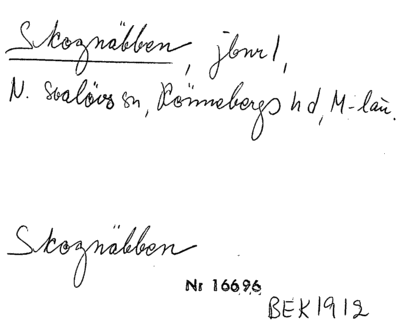 Skognäbben, jbnr 1,
N. Svalövs sn, Rönnebergs hd, M-län.
Skognäbben
Nr 16696
BEK 1912